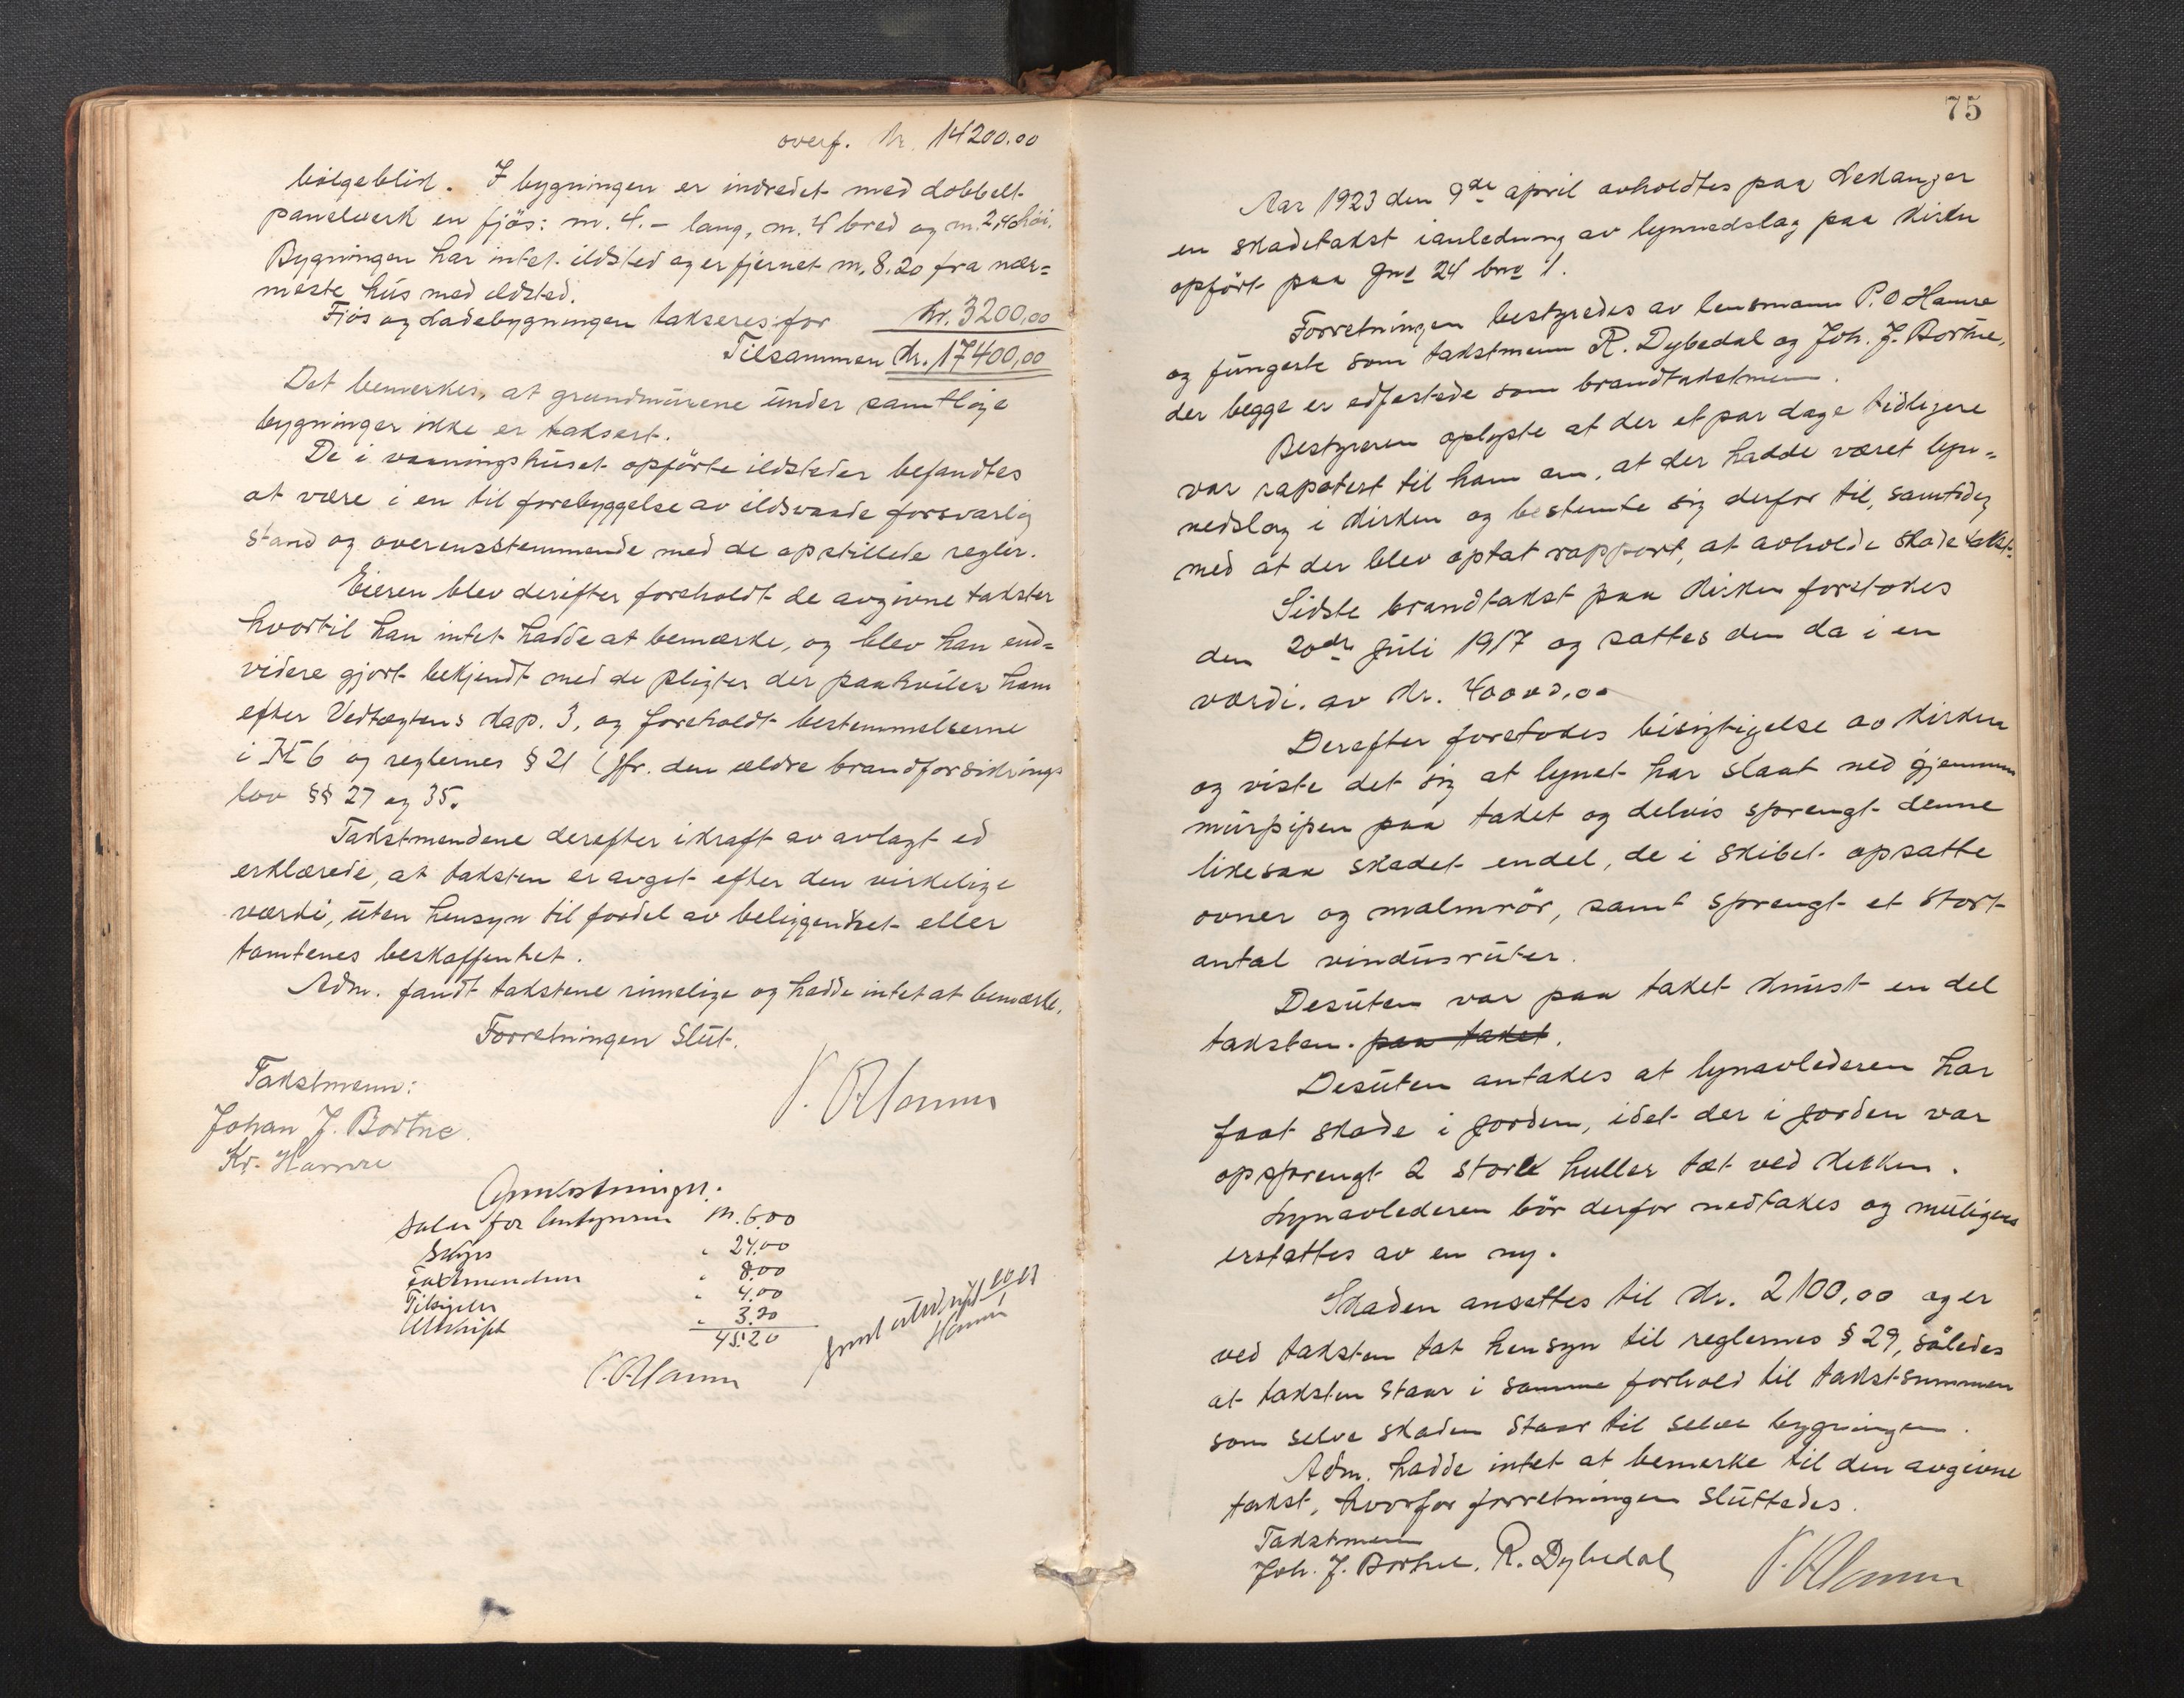 overf. Kr. 14200.00
bölgeblik. I bygningen er indredet med dobbelt
panelverk en fjös: m. 4.- lang, m. 4 bred og m. 2,40 höi.
Bygningen har intet ildsted og er fjernet m. 8.20 fra nær=
meste hüs med ildsted.
Fjös og Ladebygningen takseres for Kr. 3200,00
Tilsammen Kr. 17400,00
Det bemerkes, at grundmürene ünder samtlige
bygninger ikke er taksert.
De i vaaningshüset opförte ildsteder befandtes
at være i en til forebyggelse av ildsvaade forsvarlig
stand og overensstemmende med de opstillede regler.
Eieren blev derefter foreholdt de avgivne takster
hvortil han intet hadde at bemærke, og blev han end=
videre gjort bekjendt med de pligter der paahviler ham
efter Vedtægtens kap. 3, og foreholdt bestemmelserne
i § 6 og reglernes § 21 (jfr. den ældre brandforsikrings
lov §§ 27 og 35.
Takstmendene derefter i kraft av avlagt ed
erklærede, at taksten er avget efter den virkelige
værdi, üten hensyn til fordel av beliggenhet eller
tomtenes beskaffenhet.
Adm. fandt takstene rimelige og hadde intet at bemærke.
Forretningen Slüt.
Takstmenn: P. O Hamre
Johan J. Bortne.
Kr. Hamre
Omkostninger.
Salær for bestyreren Kr. 6.00
Skyss " 24.00
Takstmendene " 8.00
Tilsigelse " 4.00
Utskrift " 3.20
45.20
P. O Hamre
Hamre
75
Aar 1923 den 9de april avholdtes paa Lekanger
en skadetakst ianledning av lynnedslag paa kirken
opfört paa gno 24 bno 1.
Forretningen bestyredes av lensmann P. O Hamre
og füngerte som takstmenn R. Dybedal og Joh. J. Bortne,
der begge er edfæstede som brandtakstmenn.
Bestyreren oplyste at der et par dage tidligere
var rapotert til ham om, at der hadde været lyn=
nedslag i kirken og bestemte sig derfor til, samtidig
med at der blev optat rapport, at avholde skadetakst.
Sidste brandtakst paa kirken foretokes
den 20de jüli 1917 og sattes den da i en
værdi. av kr. 40000.00
Derefter foretokes besigtigelse av kirken
og viste det sig at lynet har slaat ned gjennem
mürpipen paa taket og delvis sprengt denne
likesaa skadet endel, de i skibet opsatte
ovner og malmrör, samt sprengt et stort
antal vindüsrüter.
Desüten var paa taket knüst en del
taksten. paa taket.
Desüten antakes at lynavlederen har
faat skade i jorden, idet der i jorden var
opsprengt 2 store huller tæt ved kirken.
Lynavlederen bör derfor nedtakes og müligens
erstattes av en ny.
Skaden ansettes til kr. 2100,00 og er
ved taksten tat hensyn til reglernes § 29, således
at taksten staar i samme forhold til takstsummen
som selve skaden staar til selve bygningen.
Adm. hadde intet at bemerke til den avgivne
takst, hvorfor forretningen slüttedes.
Takstmenn
Joh. J. Bortne. R. Dybedal P. O Hamre